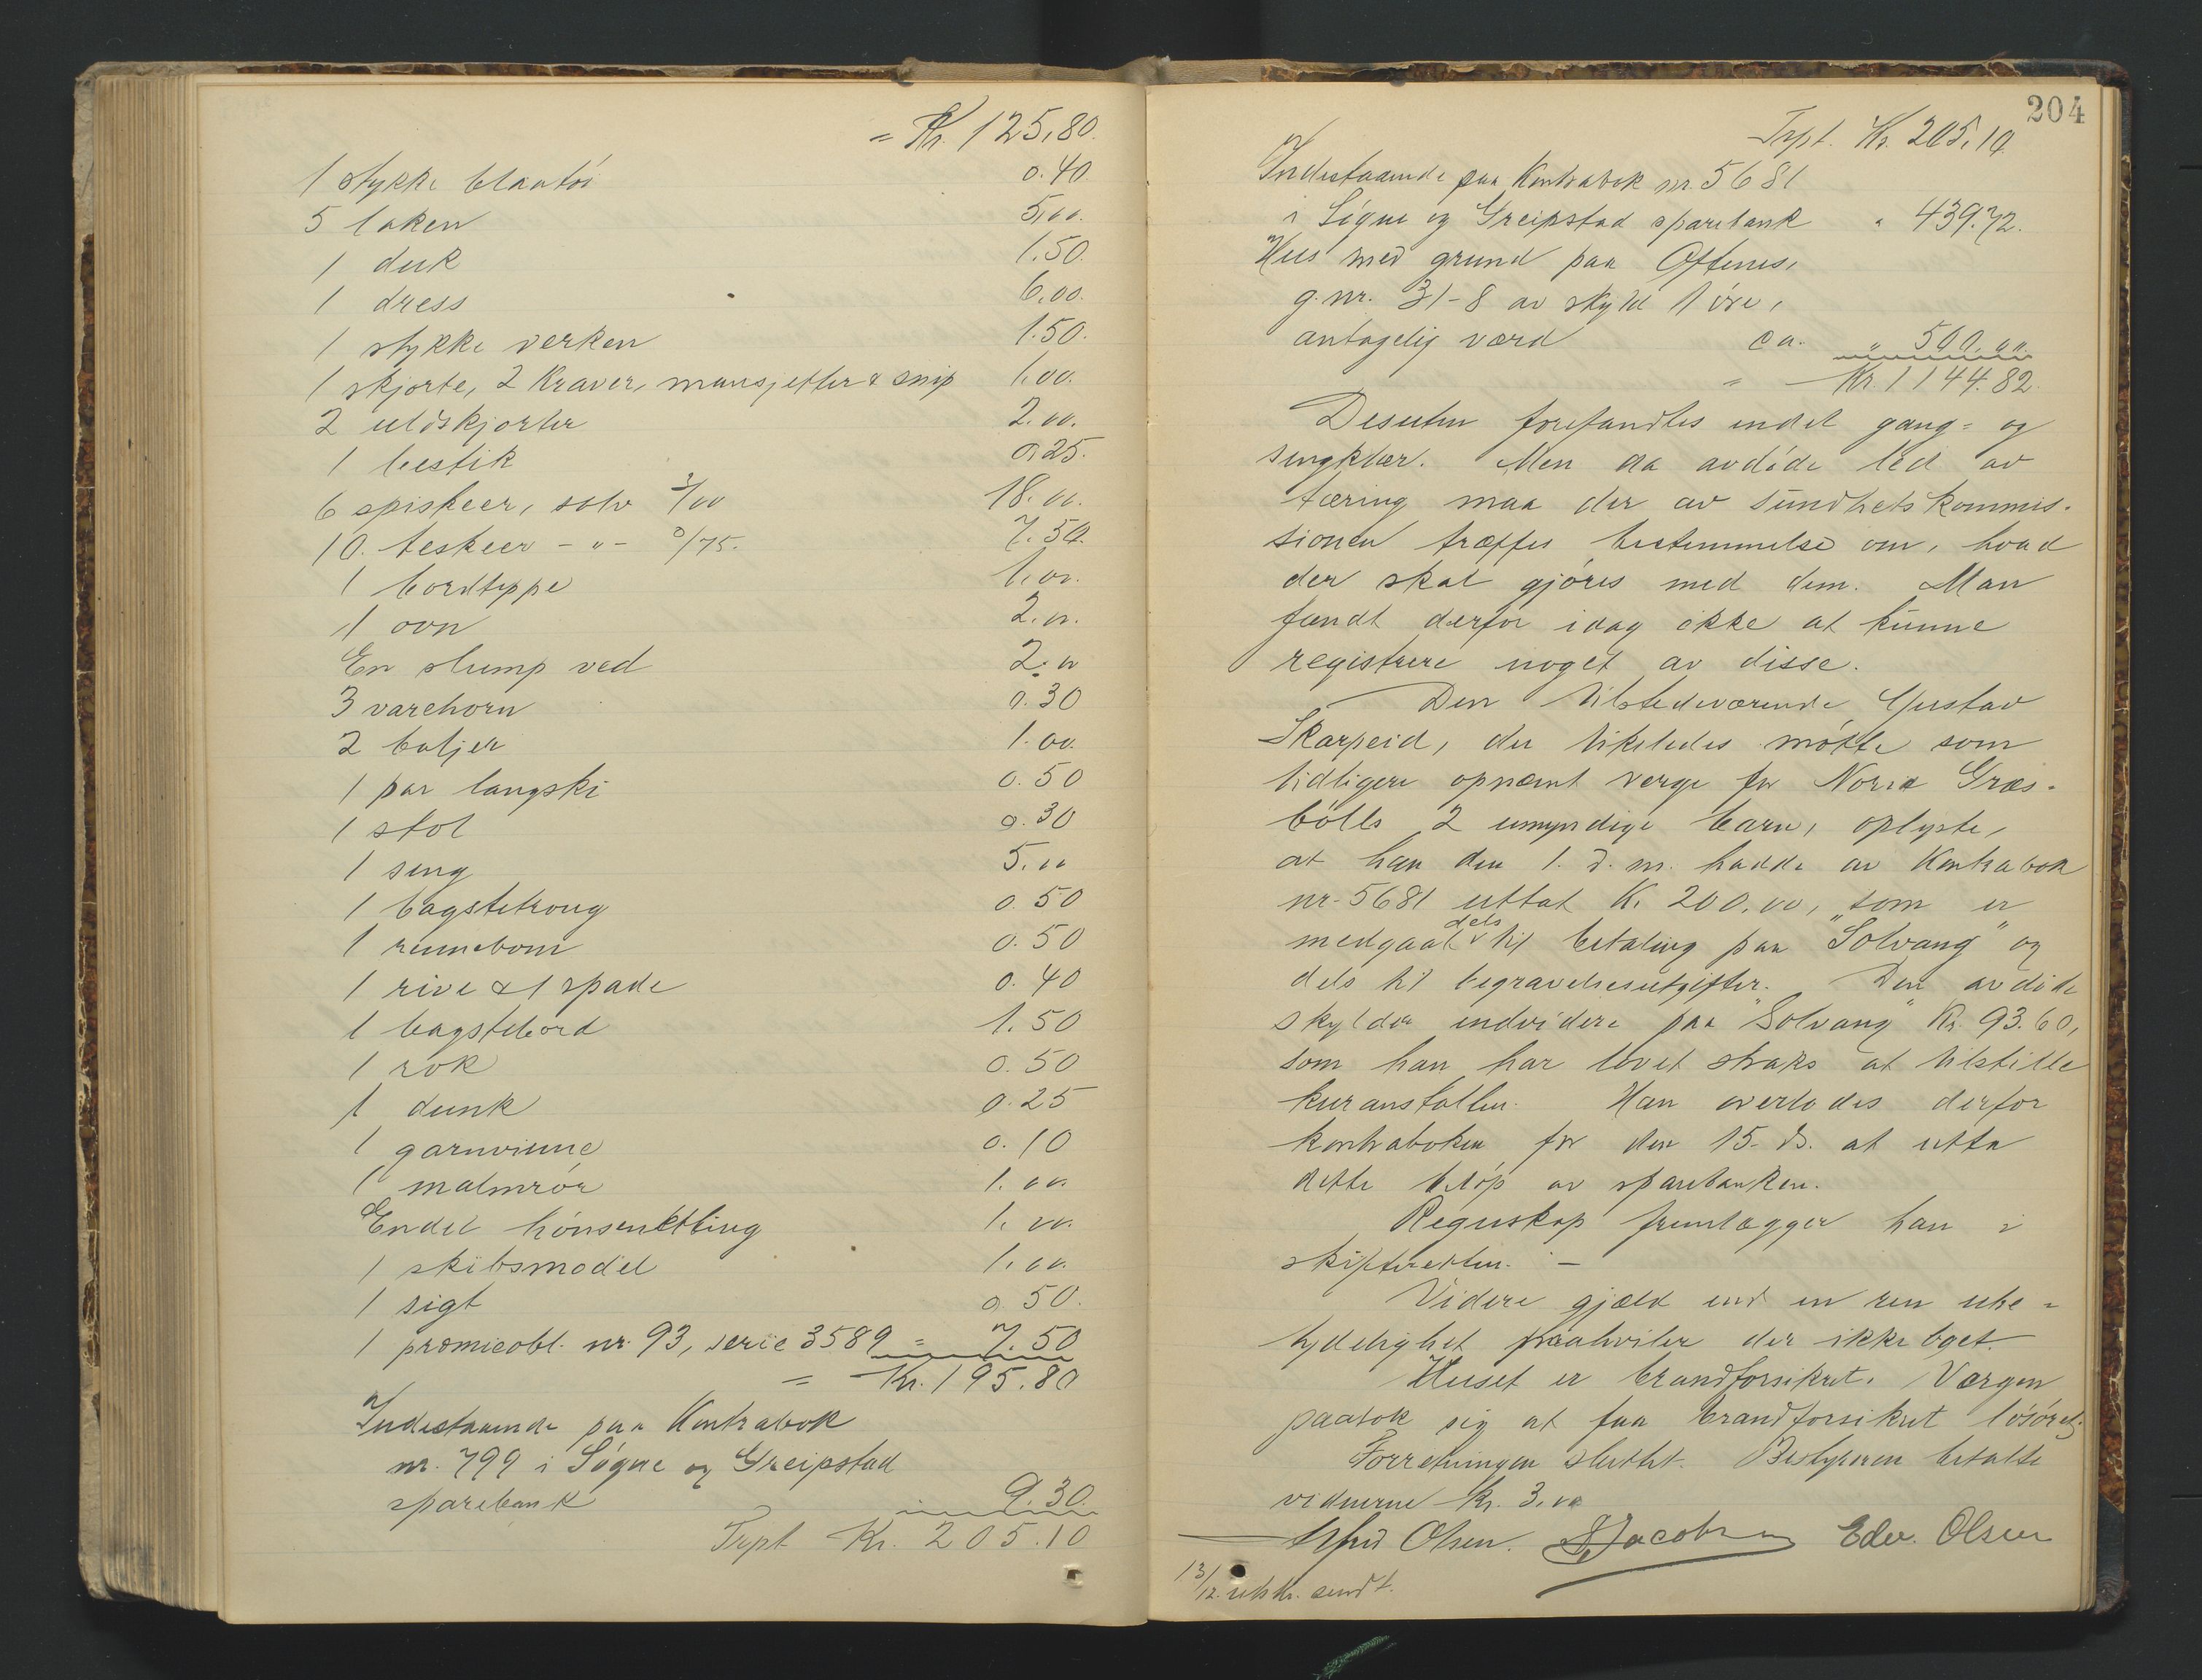 = Kr. 125,80.
1 stykke blaatöi 0.40
5 laken 5,00.
1 duk 1.50.
1 dress 6,00.
1 stykke verken 1.50.
1 skjorte, 2 kraver, mansjetter & snip 1,00.
2 uldskjorter 2.00.
1 bestik 0,25.
6 spiskeer, sølv 3/00 18.00.
10. teskeer -"- 0/75. 7.50.
1 bordteppe 1,00.
1 ovn 2.00.
En slump ved 2.00
3 varehorn 0.30
2 baljer 1.00.
1 par langski 0.50
1 stol 0.30
1 seng 5.00
1 bagstetroug 0.50
1 rennebom 0.50
1 rive & 1 spade 0.40
1 bagstebord 1.50
1 rok 0.50
1 dunk 0.25
1 garnvinne 0.10
1 malmrör 1.00.
Endel hönsenetting 1.00.
1 skibsmodel 1.00.
1 sigt 0 50.
1 præmieobl. nr 93, serie 3589 = 7.50
= Kr. 195.80
Indestaaende paa Kontrabok
nr. 799 i Sögne og Greipstad
sparebank 9.30.
Trpt Kr. 205.10
204
Trpt. Kr. 205.10
Indestaaende paa Kontrabok nr. 5681
i Sögne og Greipstad sparebank " 439.72.
Hus med grund paa Oftenes,
g.nr. 31-8 av skyld 1 öre,
antagelig værd ca. " 500,00.
= Kr 1144.82.
Desuten forefandtes endel gang- og
sengklær. Men da avdöde led av
tæring maa der av sundhetskommis-
sionen træffes bestemmelse om, hvad
der skal gjöres med dem. Man
fandt derfor idag ikke at kunne
registrere noget av disse.
Den tilstedeværende Gustav
Skarpeid, der likeledes mötte som
tidligere opnævnt verge for Græs-
bölls 2 umyndige barn, oplyste,
at han den 1. d. m. hadde av Kontrabok
nr. 5681 uttat Kr 200.00, som er
medgaat dels til betaling paa "Solvang" og
dels til begravelsesutgifter. Den avdöde
skylder endvidere paa "Solvang" Kr. 93.60,
som han har lovet straks at tilstille
kuranstalten. Han overlodes derfor
kontraboken for den 15. ds. at utta
dette belöp av sparebanken.
Regnskap fremlægger han i
skifteretten. -
Videre gjæld end en ren ube-
tydelighet paahviler der ikke boet.
Huset er brandforsikret. Vergen
paatok sig at faa brandforsikret lösöret.
Forretningen sluttet. Bestyreren betalte
vidnerne Kr. 3.00
Alfred Olsen. Jacobsen Edv. Olsen
13/12. utskr. sendt.